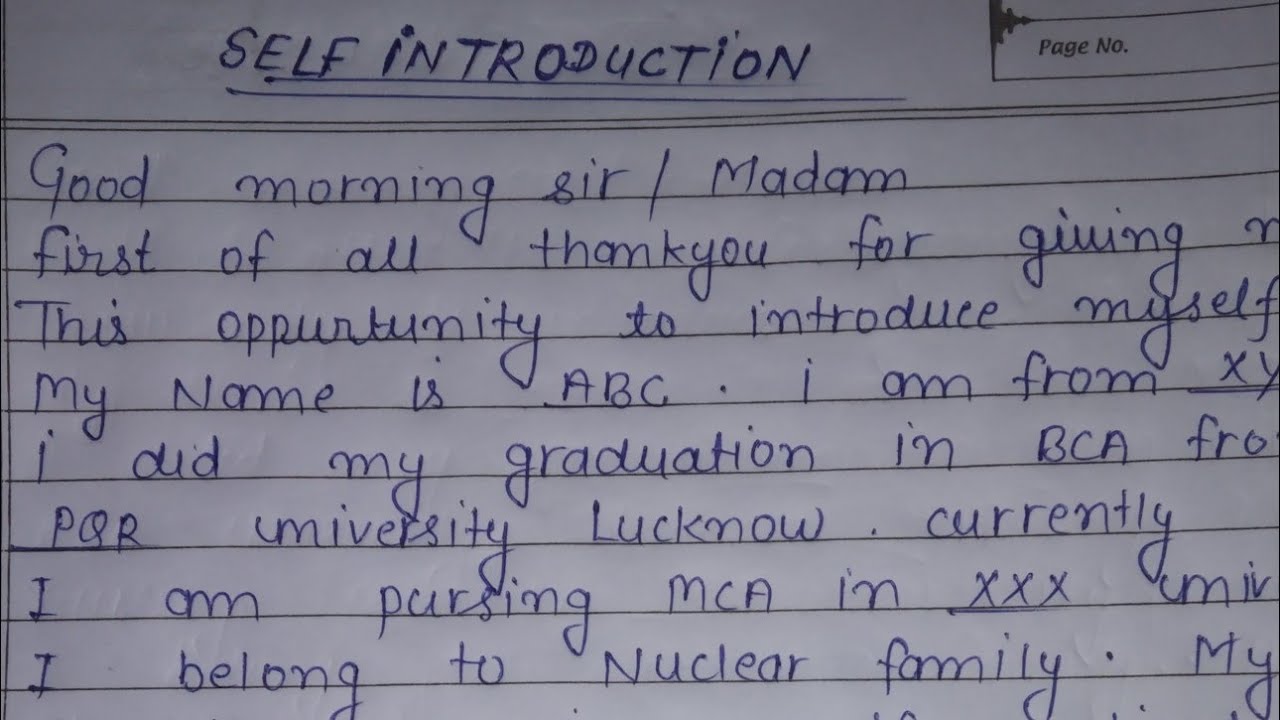 SELF INTRODUCTION
Page No.
Good morning sir / Madam
first of all thankyou for giving
This oppurtunity to introduce myself
My Name is ABC. i am from XY
i did my graduation in BCA fro
PQR university Lucknow. currently
I am pursing MCA in XXX univ
I belong to Nuclear family. My